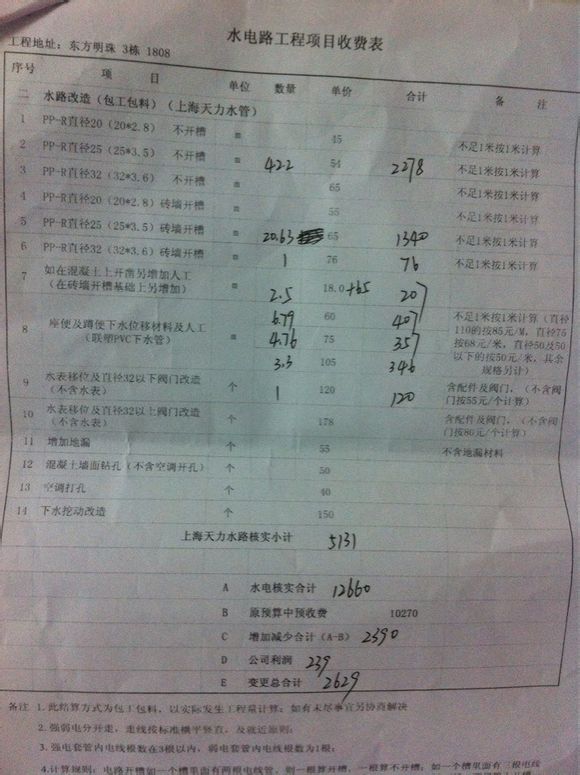 水电路工程项目收费表
工程地址：东方明珠 3栋 1808
序号 项 目 单位 数量 单价 合计 备 注
二 水路改造（包工包料）（上海天力水管）
1 PP-R直径20（20*2.8） 不开槽 m 45 不足1米按1米计算
2 PP-R直径25（25*3.5） 不开槽 m 42.2 54 2278 不足1米按1米计算
3 PP-R直径32（32*3.6） 不开槽 m 65 不足1米按1米计算
4 PP-R直径20（20*2.8）砖墙开槽 m 55 不足1米按1米计算
5 PP-R直径25（25*3.5）砖墙开槽 m 20.63 65 1340 不足1米按1米计算
6 PP-R直径32（32*3.6）砖墙开槽 m 1 76 76 不足1米按1米计算
7 如在混凝土上开凿另增加人工
（在砖墙开槽基础上另增加） m 2.5 18.0+65 207
8 座便及蹲便下水位移材料及人工
（联塑PVC下水管） m 6.79 60 407
4.76 75 357
3.3 105 346
不足1米按1米计算（直径
110的按85元/M，直径75
按68元/米，直径50及50
以下的按50元/米，其余
规格另计）
9 水表移位及直径32以下阀门改造
（不含水表） 个 1 120 120 含配件及阀门，（不含阀
门按55元/个计算）
10 水表移位及直径32以上阀门改造
（不含水表） 个 178 含配件及阀门，（不含阀
门按80元/个计算）
11 增加地漏 个 55 不含地漏材料
12 混凝土墙面钻孔（不含空调开孔） 个 50
13 空调打孔 个 40
14 下水挖动改造 个 150
上海天力水路核实小计 5131
A 水电核实合计 12660
B 原预算中预收费 10270
C 增加减少合计（A-B） 2390
D 公司利润 239
E 变更总合计 2629
备注 1.此结算方式为包工包料，以实际发生工程量计算；如有未尽事宜另协商解决
2. 强弱电分开走，走线按标准横平竖直，及就近原则；
3. 强电套管内电线根数在3根以内，弱电套管内电线根数为1根；
4.计算规则：电路开槽如一个槽里面有两根电线管，则一根算开槽，一根算不开槽；如一个槽里面有三根电线